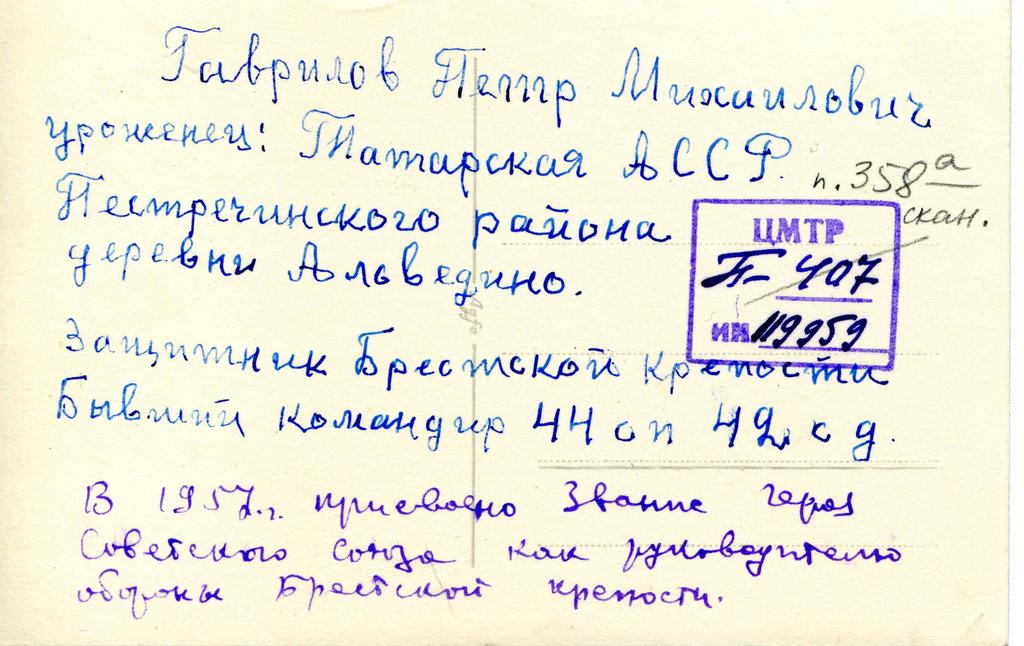 Гаврилов Петр Михаилович
уроженец: Татарская АССР.
п. 358а
скан.
Пестречинского района
деревни Альведино.
ЦМТР
П-407
ин 119959
Защитник Брестской крепости
Бывший командир 44 сп 42 с д.
В 1957.г. присвоено Звание героя
Советского союза как руководителю
обороны Брестской крепости.